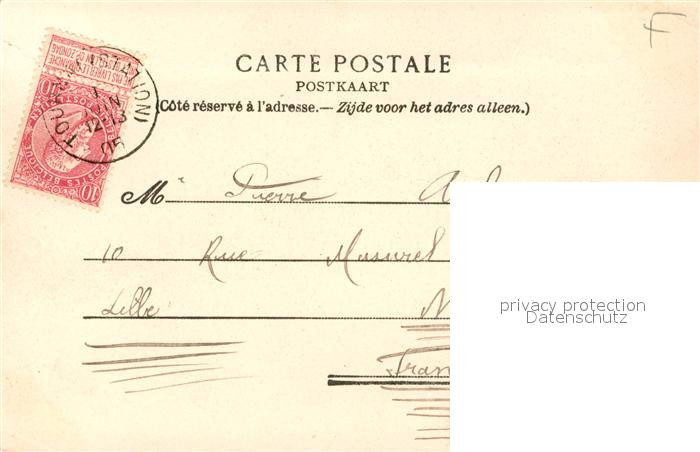 F
CARTE POSTALE
POSTKAART
(Côté réservé à l'adresse.— Zijde voor het adres alleen.)
NE PAS LIVRER LE DIMANCHE
NIET BESTELLEN OP ZONDAG
POSTES BELGIQUE
BELGIE POSTERIJEN
10 10
(STATION)
1
12-13
05
M Pierre
10 Rue Masurel
Lille N
privacy protection
Datenschutz
Fran